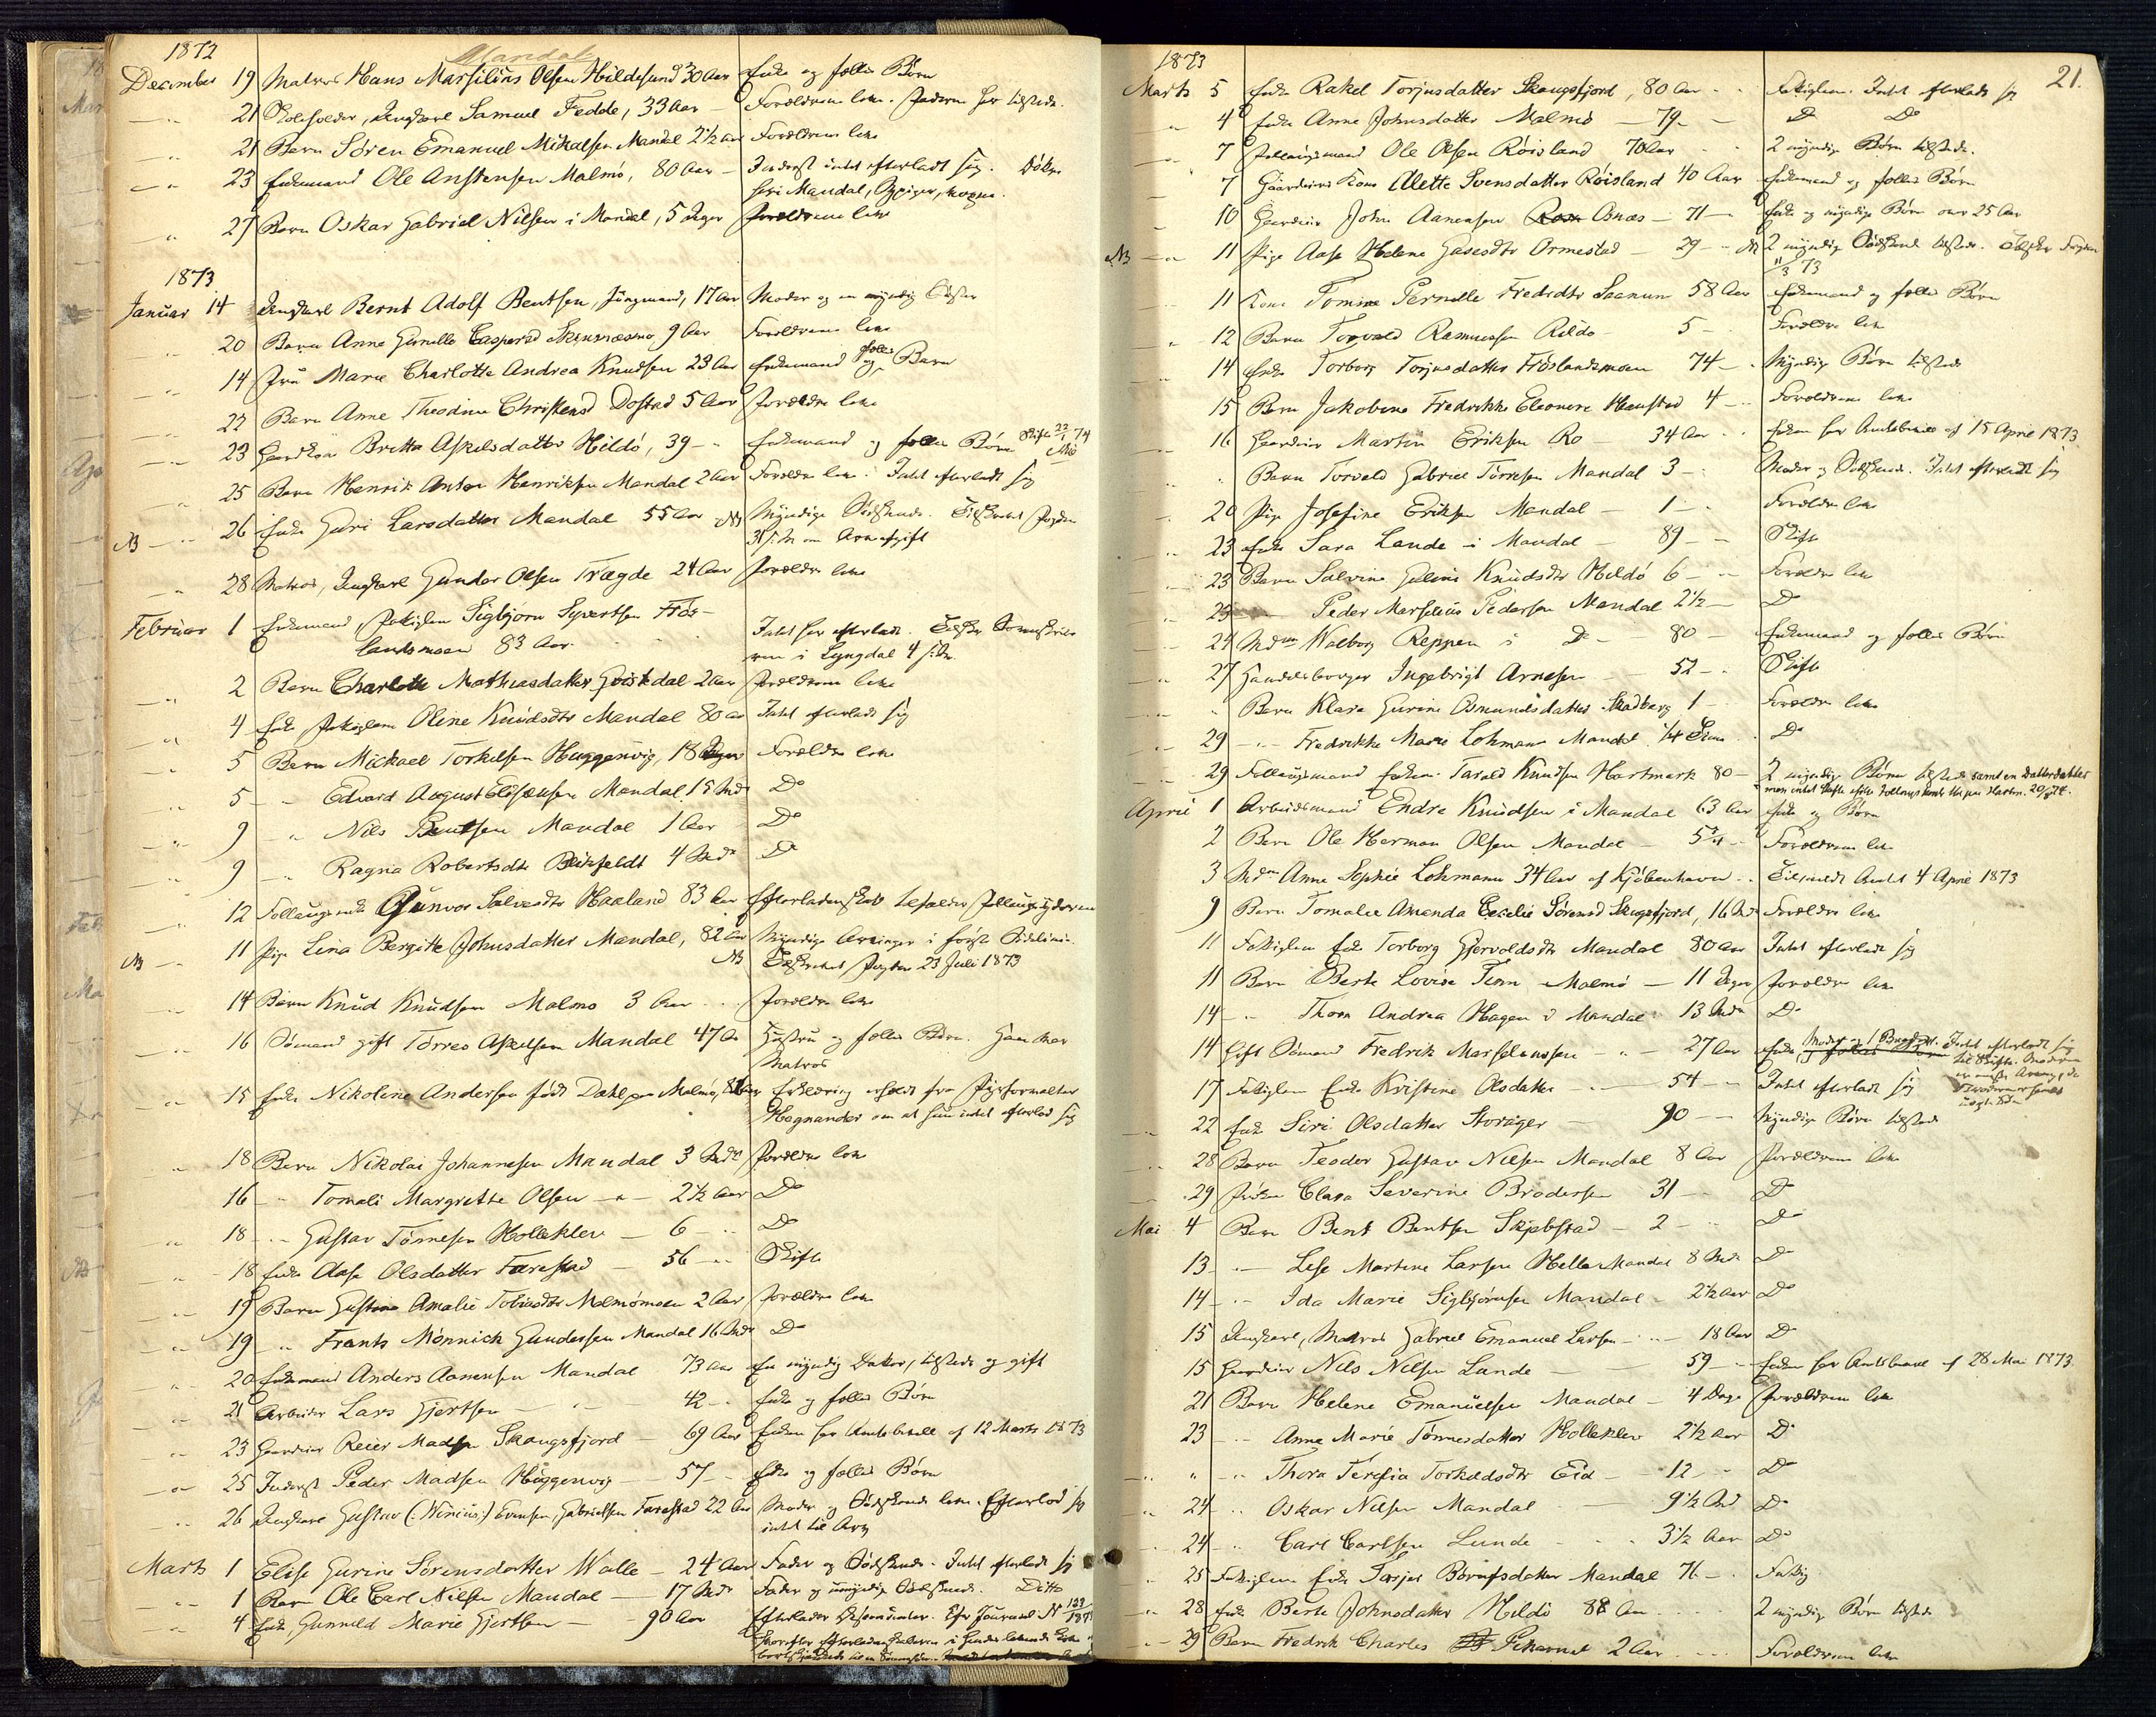 Mandal
1872
December 19 Matros Hans Marsilius Olsen Hildesund 30 Aar Enke og fælles Børn
21 Ungkarl Samuel Fedde, 33 Aar Forældrene leve. Faderen her tilstede.
21 Barn Søren Emanuel Mikalsen Mandal 2½ Aar Forældrene leve
23 Enkemand Ole Anstensen Malmø, 80 Aar Inderst intet efterladt sig.
Mandal,
27 Barn Oskar Gabriel Nilsen i Mandal, 5 Uger Forældrene leve
1873
Januar 14 Ungkarl Bernt Adolf Bentsen, Jungmand, 17 Aar Moder og en myndig Søster
20 Barn Anne Gunille Caspersd Skinsnæsmo 9 Aar Forældrene leve
14 Fru Marie Charlotte Andrea Knudsen 23 Aar Enkemand og fælles Barn
22 Barn Anne Theodine Christensd Dostad 5 Aar Forældre leve
23 Britta Askilsdatter Hildø, 39 Enkemand og fælles Børn
25 Barn Henrik Anton Henriksen Mandal 2 Aar Forældre leve. Intet efterladt sig
NB 26 Enke Guri Larsdatter Mandal 55 Aar NB Myndige Sødskende. Tilskrevet Fogden
om Arveafgift
28 Matros, Ungkarl Gunder Olsen Trægde 24 Aar Forældre leve
Februar 1 Enkemand, Fattiglem Sigbjørn Syvertsen Frøs-
landsmoen 83 Aar Intet har efterladt. Tilskr Sorenskrive
ren i Lyngdal 4
2 Barn Charlotte Mathiasdatter Goiskdal 2 Aar Forældrene leve
4 Enke Fattiglem Oline Knudsdtr Mandal 80 Aar Intet efterladt sig
5 Barn Mickael Torkelsen Huggenvig, 18 Uger Forældre leve
5 " Edvard August Eliseusen Mandal 15 Mdr Do
9 " Nils Bentsen Mandal 1 Aar Do
9 " Ragna Robertsdtr Blikfeldt 4 Mdr Do
12 Follaugsenke Gunvor Salvesdtr Haaland 83 Aar Efterladenskab tilfalder Follaugsyderen
NB 11 Pige Lina Bergitte Johnsdatter Mandal, 82 Aar NB Myndige Arvinger i første Sidelinie.
Tilskrevet Fogden 23 Juli 1873
14 Barn Knud Knudsen Malmø 3 Aar Forældre leve
16 Sømand gift Tørres Askelsen Mandal 47 Aar Hustru og fælles Børn. Han var
Matros
15 Enke Nikoline Andersen født Dahl paa Malmø, Erklæring erholdt fra
Hognander om at hun intet efterlod sig
18 Barn Nikolai Johannesen Mandal 3 Mdr Forældre leve
16 " Tomali Margrethe Olsen " 2½ Aar Do
18 " Gustav Tønnesen Holleklev 6 " Do
18 Enke Aase Olsdatter Færestad 56 " Skifte
19 Barn Gustine Amalie Tobiasdtr Malmømoen 2 Aar Forældre leve
19 " Frants Mønnich Gundersen Mandal 16 Mdr Do
20 Enkemand Anders Aanensen Mandal 73 Aar En myndig Datter, tilstede og gift
21 Arbeider Lars Gjertsen " 42 Enke og fælles Børn
23 Gaardeier Reier Madsen Skaugsfjord 69 Aar Enken har Amtsbevill af 12 Marts 1873
25 Inderst Peder Madsen Huggenvig 57 Enke og fælles Børn
26 Ungkarl Gustav (: Ninius :) Evensen, Gabrielsen Færestad 22 Aar Moder og Sødskende leve. Efterlod sig
intet til Arv
Marts 1 Elise Gurine Sørensdatter Walle 24 Aar Fader og Sødskende. Intet efterladt sig
1 Barn Ole Carl Nilsen Mandal 17 Mdr Fader og umyndige Sødskende. Ditto
4 Enke, Gunnild Marie Gjertsen 90 Aar Efterlader Testamente. Efr Journal No
21.
1873
Marts 5 Enke Rakel Torjusdatter Skaugsfjord, 80 Aar Fattiglem. Intet efterladt sig
4 Enke Anne Johnsdatter Malmø 79 Do Do
7 Follaugsmand Ole Olsen Røisland 78 Aar 2 myndige Børn tilstede.
7 Gaardeiers Kone Alette Svensdatter Røisland 40 Aar Enkemand og fælles Børn
10 Gaardeier John Aanensen Osnæs 71 Enke og myndige Børn over 25 Aar
NB 11 Pige Aase Helene Gasesdtr Ormestad 29 NB 2 myndige Sødskende tilstede. Tilskr Fogden
11/3 73
11 Kone Tomine Pernille Fredrdtr Saanum 58 Aar Enkemand og fælles Børn
12 Barn Torvald Rasmussen Rildø 5 Forældre leve
14 Enke Torborg Torjusdatter Frøslandsmoen 74 Myndige Børn tilstede
15 Barn Jakobine Fredrikke Eleonore Haustad 4 Forældrene leve
16 Gaardeier Martin Eriksen Ro 34 Aar Enken har Amtsbevill af 15 April 1873
" Barn Torvald Gabriel Tørresen Mandal 3 Moder og Sødskende. Intet efterladt sig
20 Pige Josefine Eriksen Mandal 1 Forældre leve
23 Enke Sara Lande i Mandal 89 Skifte
23 Barn Salvine Guline Knudsdtr Hildø 6 Forældre leve
23 Peder Marselius Pedersen Mandal 2½ Do
24 Mdm Walborg Reppen i Do 80 Enkemand og fælles Børn
27 Handelsborger Ingebrigt Arnesen 52 Skifte
" Barn Klara Gurine Osmundsdatter Skadberg 1 Forældre leve
29 " Fredrikke Marie Lohmann Mandal ¼ Time Do
29 Follaugsmand Enkem. Tarald Knudsen Hartmark 80 2 myndige Børn tilstede samt en Datterdatter
April 1 Arbeidsmand Endre Knudsen i Mandal 63 Aar Enke og Børn
2 Barn Ole Herman Olsen Mandal 5¾ Forældrene leve
3 Mdm Anne Sophie Lohmann 34 Aar af Kjøbenhavn Tilmeldt Amtet 4 April 1873
9 Barn Tomalie Amanda Cecelie Sørensd Skaugsfjord, 16 Mdr Forældre leve
11 Fattiglem Enke Torborg Gjervoldsdtr Mandal 80 Aar Intet efterladt sig
11 Barn Berte Lovise Finn Malmø 11 Uger Forældre leve
14 " Thora Andrea Hagen i Mandal 13 Mdr Do
14 Gift Sømand Fredrik Marseliussen " 27 Aar Enke, Moder og 1 Broder. Intet efterladt sig
17 Fattiglem Enke Kristine Olsdatter 54 Intet efterladt sig
22 Enke Siri Olsdatter Storager 90 Myndige Børn tilstede
28 Barn Teodor Gustav Nilsen Mandal 8 Aar Forældrene leve
29 Clara Severine Brodersen 31 Do
Mai 4 Barn Bent Bentsen Skjebstad 2 Do
13 " Lise Martine Larsen Helle Mandal 8 Mdr Do
14 " Ida Marie Sigbjørnsen Mandal 2½ Aar Do
15 Ungkarl, Matros Gabriel Emanuel Larsen " 18 Aar Do
15 Gaardeier Nils Nilsen Lande 59 Enken har Amtsbevil af 28 Mai 1873.
21 Barn Helene Emanuelsen Mandal 4 Dage Forældrene leve
23 " Anne Marie Tønnesdatter Holleklev 2½ Aar Do
" " Thora Teresia Torkeldsdtr Eid 12 Do
24 " Oskar Nilsen Mandal 9½ Mdr Do
24 " Carl Carlsen Lunde 3½ Aar Do
25 Fattiglem Enke Tarjer Mandal 76 Fattig
28 Enke Berte Johnsdatter Hildø 88 Aar 2 myndige Børn tilstede
29 Barn Fredrik Charles Pekarnet 2 Aar Forældrene leve